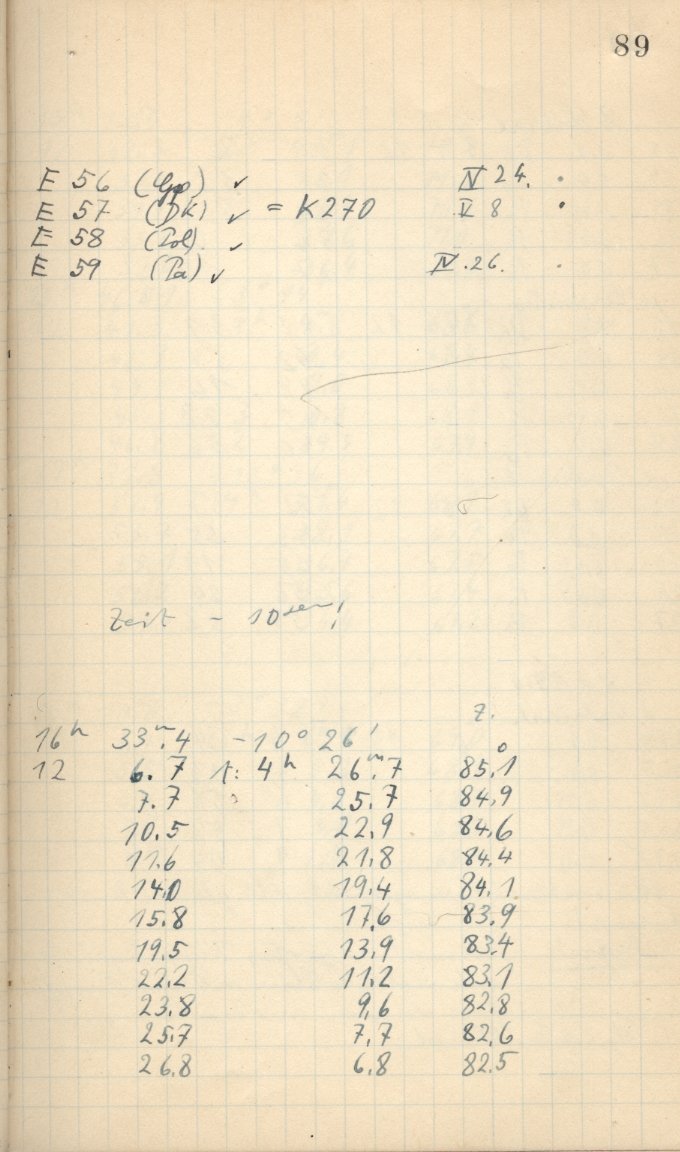 89
E 56 (Gp) ✓ IV 24.
E 57 (DK) ✓ = K270 V 8
E 58 (Tol) ✓
E 59 (Ta) ✓ IV.26.
Zeit - 10 sec!
z.
16ʰ 33ᵐ.4 -10° 26'
12 6.7 t: 4ʰ 26ᵐ.7 85.°1
7.7 25.7 84,9
10.5 22,9 84,6
11.6 21,8 84.4
14.0 19,4 84.1
15.8 17,6 83.9
19.5 13,9 83.4
22.2 11,2 83.1
23.8 9,6 82,8
25.7 7,7 82,6
26.8 6,8 82.5